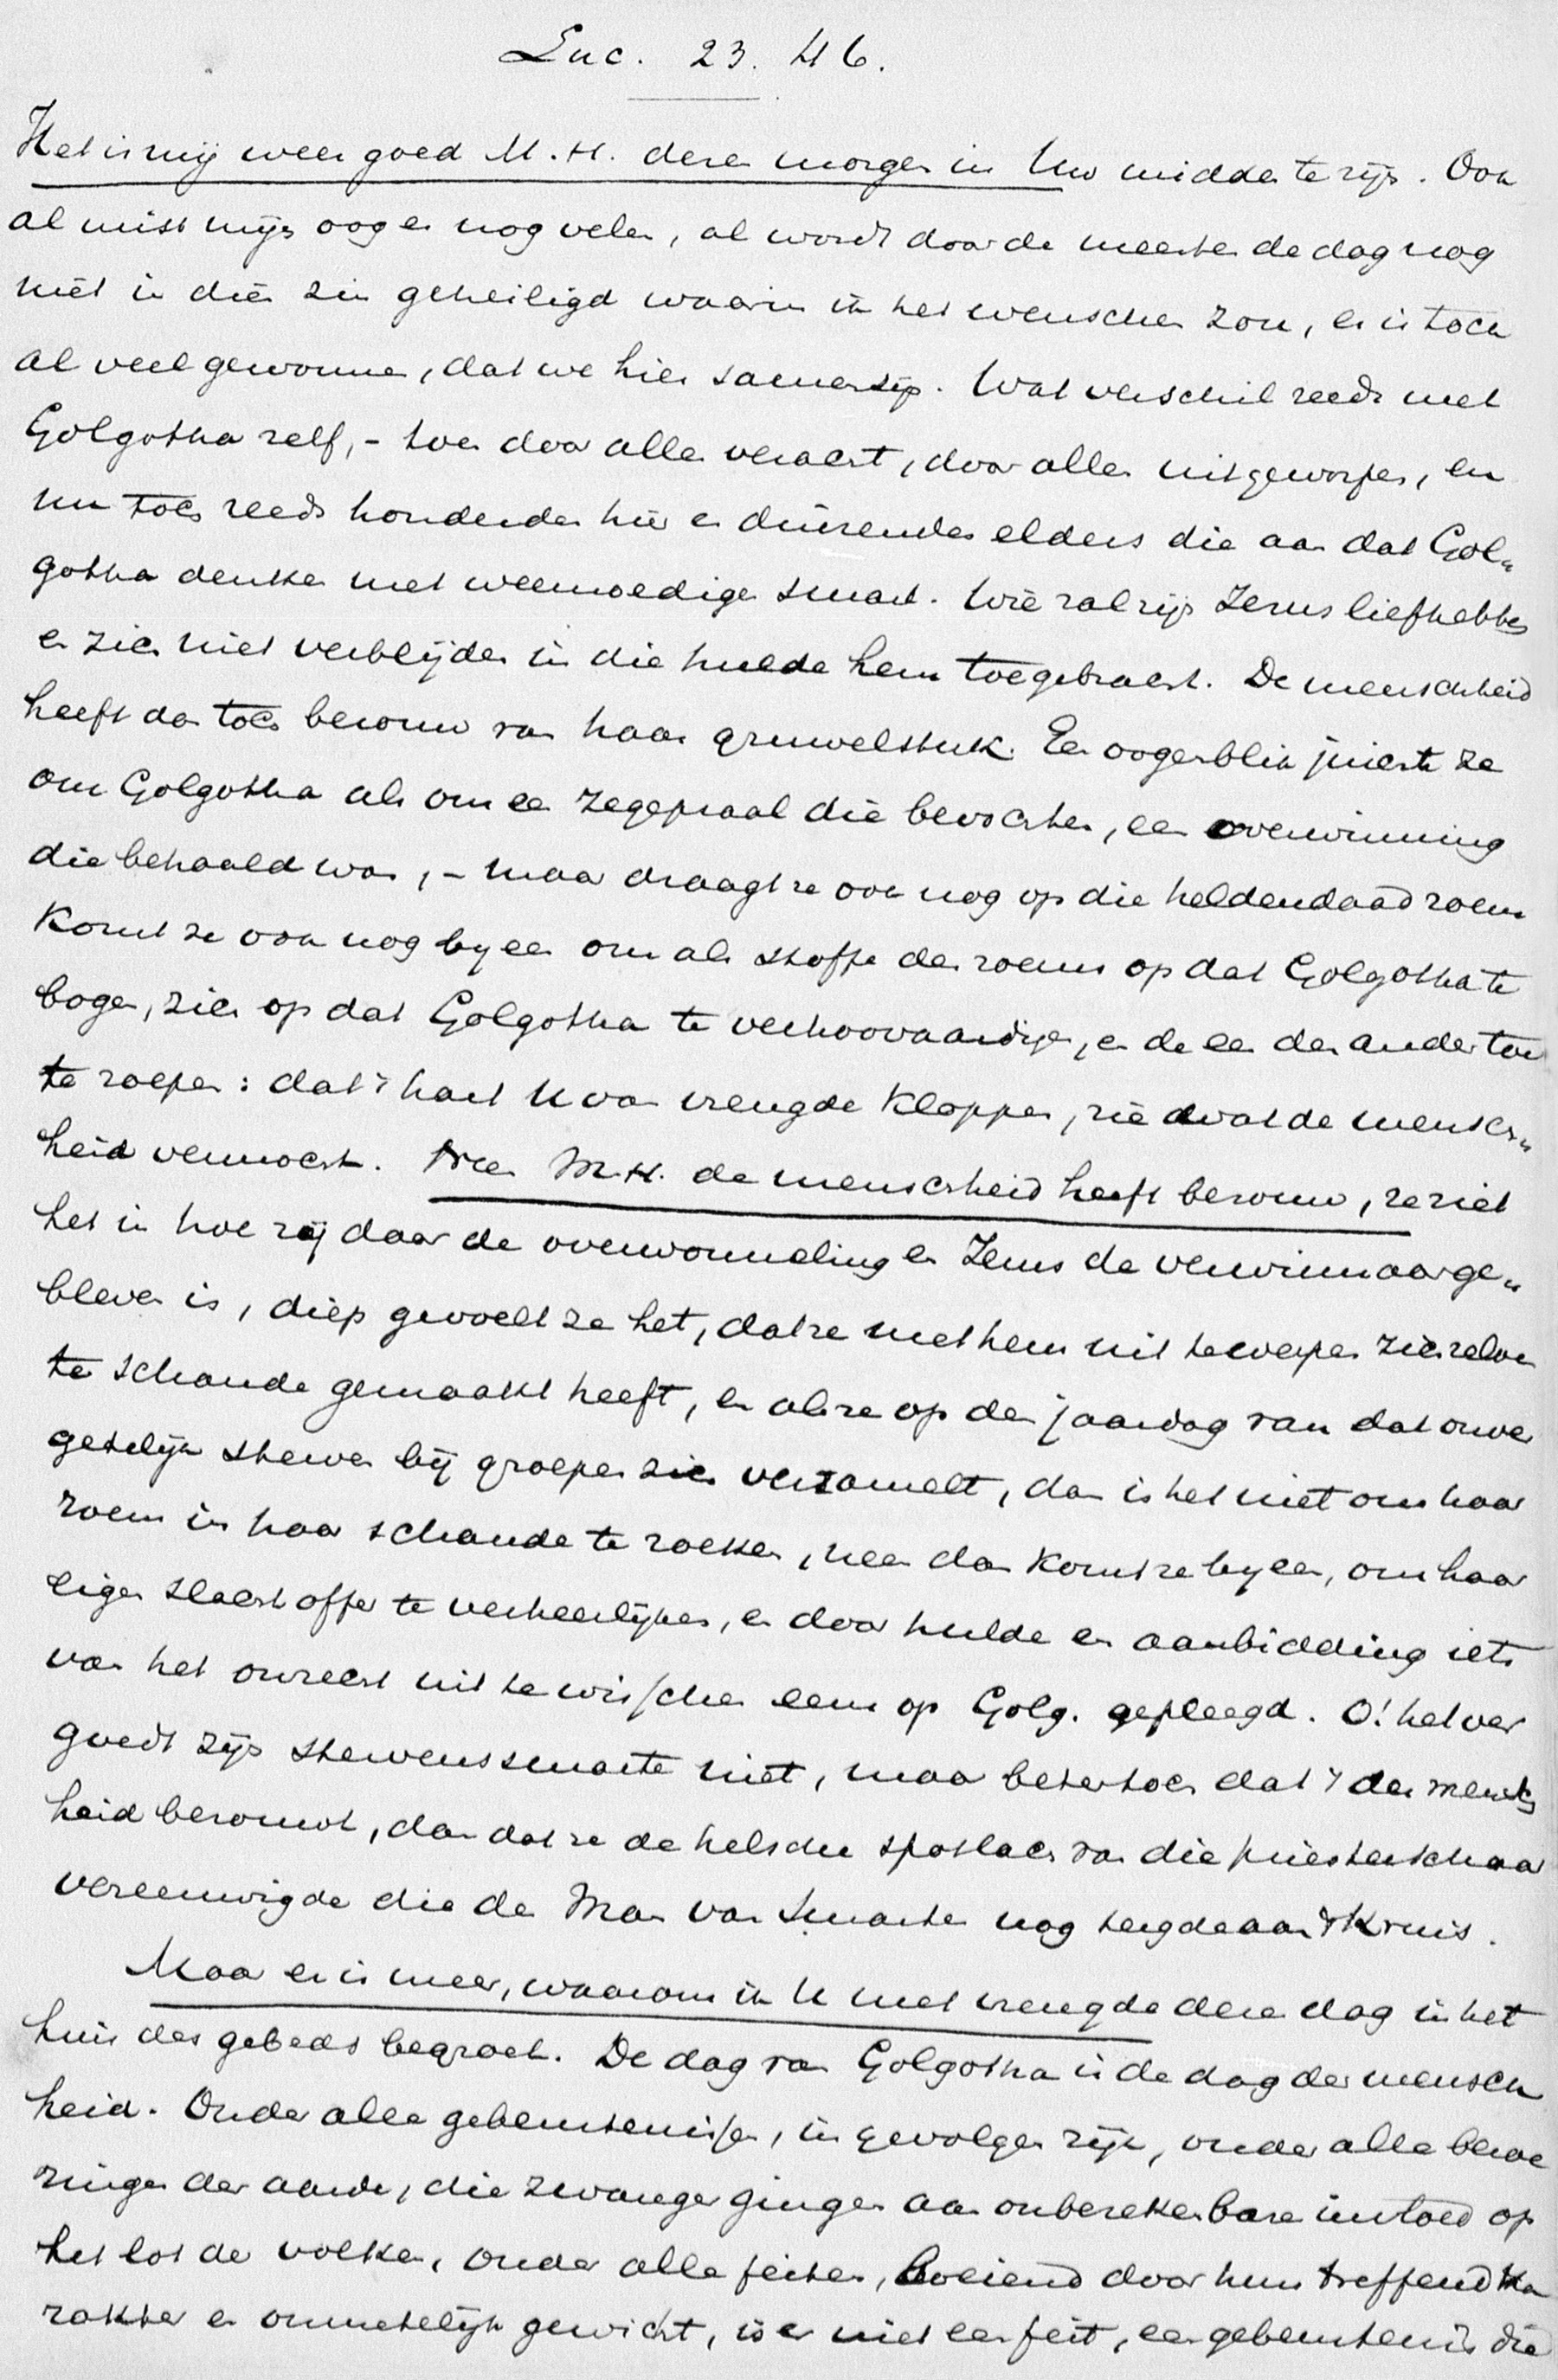 Luc. 23. 46.
Het is mij weer goed M.H. dezen morgen in Uw midden te zijn. Ook
al mist mijn oog er nog velen, al wordt door de meesten de dag nog
niet in dien zin geheiligd waarin ik het wenschen zou, er is toch
al veel gewonnen, dat we hier samen zijn. Wat verschil reeds met
Golgotha zelf, - toen door allen veracht, door allen uitgeworpen, en
nu toch reeds honderden hier en duizenden elders die aan dat Gol„
gotha denken met weemoedige smart. Wie zal zijn Jezus liefhebben
en zich niet verblijden in die hulde hem toegebracht. De menschheid
heeft dan toch berouw van haar gruwelstuk. Een oogenblik juichte ze
om Golgotha als om een zegepraal die bevochten, een overwinning
die behaald was, - maar draagt ze ook nog op die heldendaad roem
Komt ze ook nog byeen om als stoffe des roems op dat Golgotha te
bogen, zich op dat Golgotha te verhoovaardigen, en de een den ander toe
te roepen: dat 't hart U van vreugde kloppe, zie wat de mensch„
heid vermocht. Neen M.H. de menschheid heeft berouw, ze ziet
het in hoe zij daar de overwonneling en Jezus de verwinnaar ge„
bleven is, diep gevoelt ze het, dat ze met hem uit te werpen zich zelve
te schande gemaakt heeft, en als ze op den jaardag van dat onver
getelijk sterven bij groepen zich verzamelt, dan is het niet om haar
roem in haar schande te zoeken, neen dan komt ze byeen, om haar
eigen slachtoffer te verheerlijken, en door hulde en aanbidding iets
van het onrecht uit te wisschen eens op Golg. gepleegd. O! het ver
goedt zijn stervenssmarte niet, maar beter toch dat 't der mensch
heid berouwt, dan dat ze de helschen spotlach van die priesterschaar
vereeuwigde die de Man van Smarten nog tergde aan 't Kruis.
Maar er is meer, waarom ik U met vreugde dezen dag in het
huis des gebeds begroet. De dag van Golgotha is de dag der mensch
heid. Onder alle gebeurtenissen, in gevolgen rijk, onder alle beroe
ringen der aarde, die zwanger gingen aan onberekenbare invloed op
het lot der volken, onder alle feiten, boeiend door hun treffend ka
rakter en onmetelijk gewicht, is er niet een feit, een gebeurtenis die